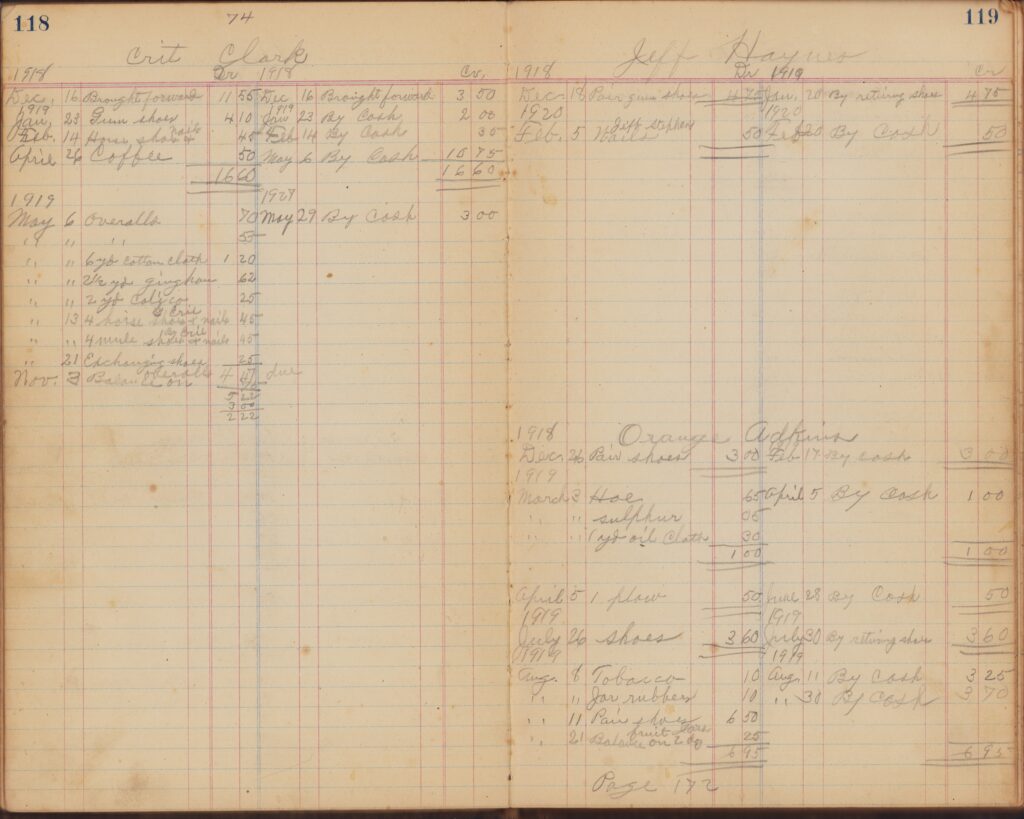 118
74
Crit Clark
1918 Dr 1918 Cr.
Dec. 16 Brought forward 11 55 Dec 16 Brought forward 3 50
1919 1919
Jan. 23 Gum shoes 4 10 Jan 23 By Cash 2 00
Feb. 14 Horse shoe nails 45 Feb 14 By Cash 35
April 26 Coffee 50 May 6 By Cash 10 75
16 60 16 60
1919
May 6 Overalls 70 May 29 By Cash 3 00
" " " 55
" " 6 yd cotton cloth 1 20
" " 2½ yd gingham 62
" " 2 yd Calico 25
" 13 4 horse shoes & nails by Crit 45
" " 4 mule shoes & nails by Crit 45
" 21 Exchanging shoes 25
Nov. 3 Balance on overalls due
5 22
3 00
2 22
119
Jeff Haynes
1918 Dr 1919 Cr
Dec 18 Pair gum shoes 4 75 Jan. 20 By retiring shoes 4 75
1920 1920
Feb. 5 Nails Jeff Stephens 50 Feb 20 By Cash 50
1918 Orange Adkins
Dec. 26 Pair shoes 3 00 Feb 17 By cash 3 00
1919
March 3 Hoe 65 April 5 By Cash 1 00
" " sulphur 05
" " 1 yd oil cloth 30
1 00 1 00
April 5 1 plow 50 June 28 By Cash 50
1919 1919
July 26 shoes 3 60 July 30 By retiring shoes 3 60
1919 1919
Aug. 8 Tobacco 10 Aug. 11 By Cash 3 25
" " Jar rubbers 10 " 30 By Cash 3 70
" 11 Pair shoes 6 50
" 21 Balance on 2 doz fruit jars 25
6 95 6 95
Page 172